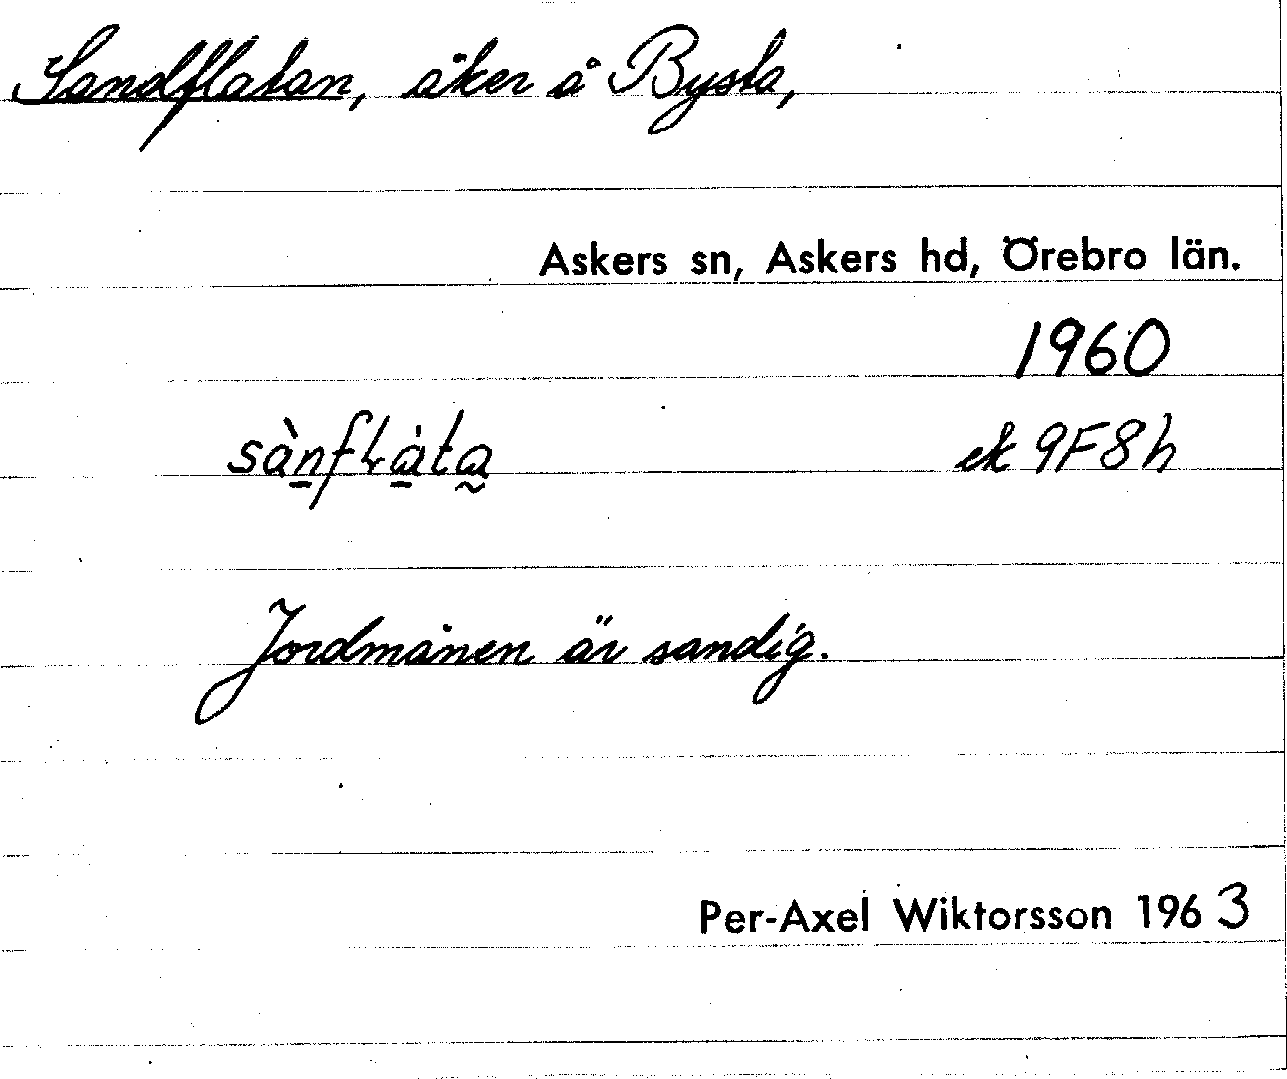 Sandflatan, åker å Bysta,
Askers sn, Askers hd, Örebro län.
1960
sànfłàta ek 9F8h
Jordmånen är sandig.
Per-Axel Wiktorsson 1963